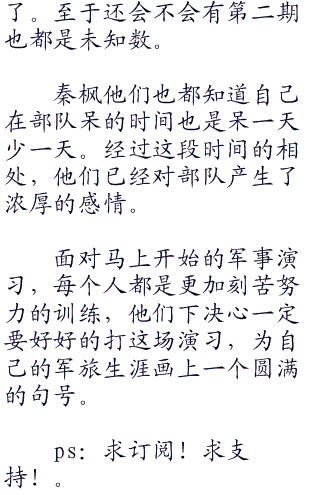 了。至于还会不会有第二期
也都是未知数。
秦枫他们也都知道自己
在部队呆的时间也是呆一天
少一天。经过这段时间的相
处，他们已经对部队产生了
浓厚的感情。
面对马上开始的军事演
习，每个人都是更加刻苦努
力的训练，他们下决心一定
要好好的打这场演习，为自
己的军旅生涯画上一个圆满
的句号。
ps：求订阅！求支
持！。